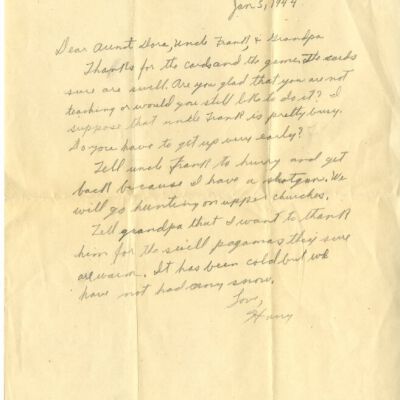 Jan 5, 1944
Dear Aunt Dora, Uncle Frank, & Grandpa
Thanks for the cards and the game. The cards
sure are swell. Are you glad that you are not
teaching or would you still like to do it? I
suppose that uncle Frank is pretty busy.
Do you have to get up very early?
Tell uncle Frank to hurry and get
back because I have a shotgun. We
will go hunting on upper churches.
Tell grandpa that I want to thank
him for the swell pagamas they sure
are warm. It has been cold but we
have not had any snow.
Love,
Harry